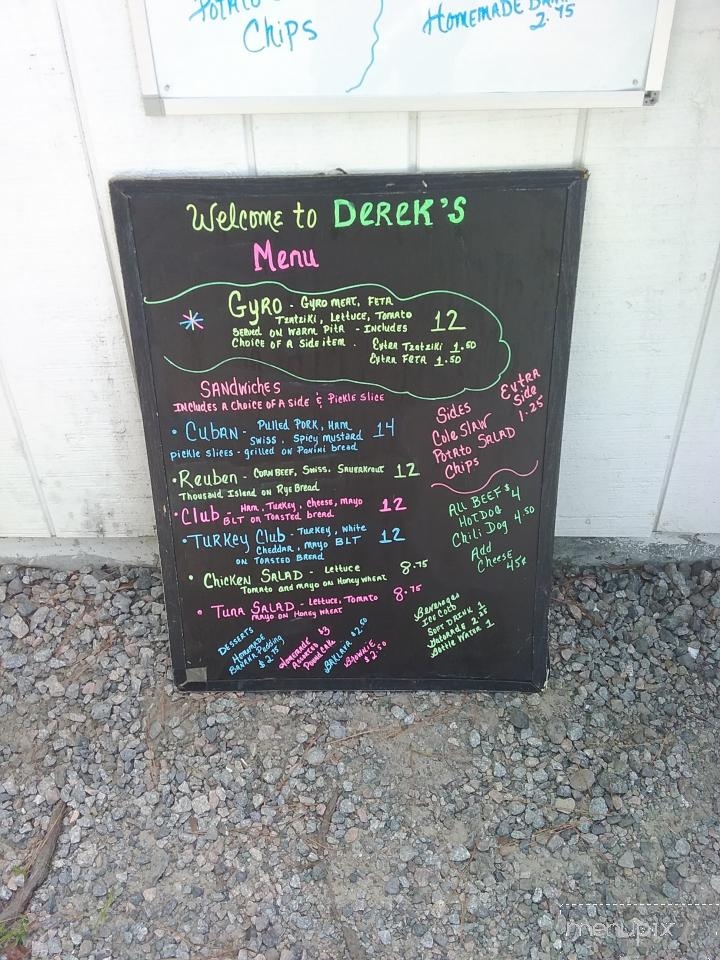 Potato
Chips
Homemade
2.95
Welcome to DEREK'S
Menu
GYRO - GYRO MEAT, FETA
Tzatziki, Lettuce, Tomato
SERVED ON WARM PITA - INCLUDES
CHOICE OF A SIDE ITEM.
12
Extra Tzatziki 1.50
Extra FETA 1.50
SANDWICHES
INCLUDES A CHOICE OF A SIDE & PICKLE SLICE
• CUBAN - PULLED PORK, HAM,
SWISS, SPICY MUSTARD
pickle slices - grilled on PANINI bread
14
• Reuben - CORN BEEF, SWISS, SAUERKROUT
Thousand Island on Rye Bread
12
• Club - HAM, TURKEY, CHEESE, MAYO
BLT ON TOASTED bread
12
• TURKEY Club - TURKEY, White
CHEDDAR, MAYO BLT
ON TOASTED BREAD
12
• CHICKEN SALAD - Lettuce
Tomato and mayo on Honey wheat
8.75
• TUNA SALAD - Lettuce, Tomato
MAYO on Honey wheat
8.75
Sides
Cole Slaw
Potato SALAD
Chips
Extra
Side
1.25
ALL BEEF $4
HOT DOG
Chili Dog 4.50
Add
Cheese
45¢
DESSERTS
Homemade
BANANA Pudding
$2.95
HOMEMADE $3
POUND CAKE
BAKLAVA $2.50
BROWNIE
$2.50
Beverages
ICE COLD
SOFT DRINK 1
Gatorade 2.25
Bottle Water 1
menupix